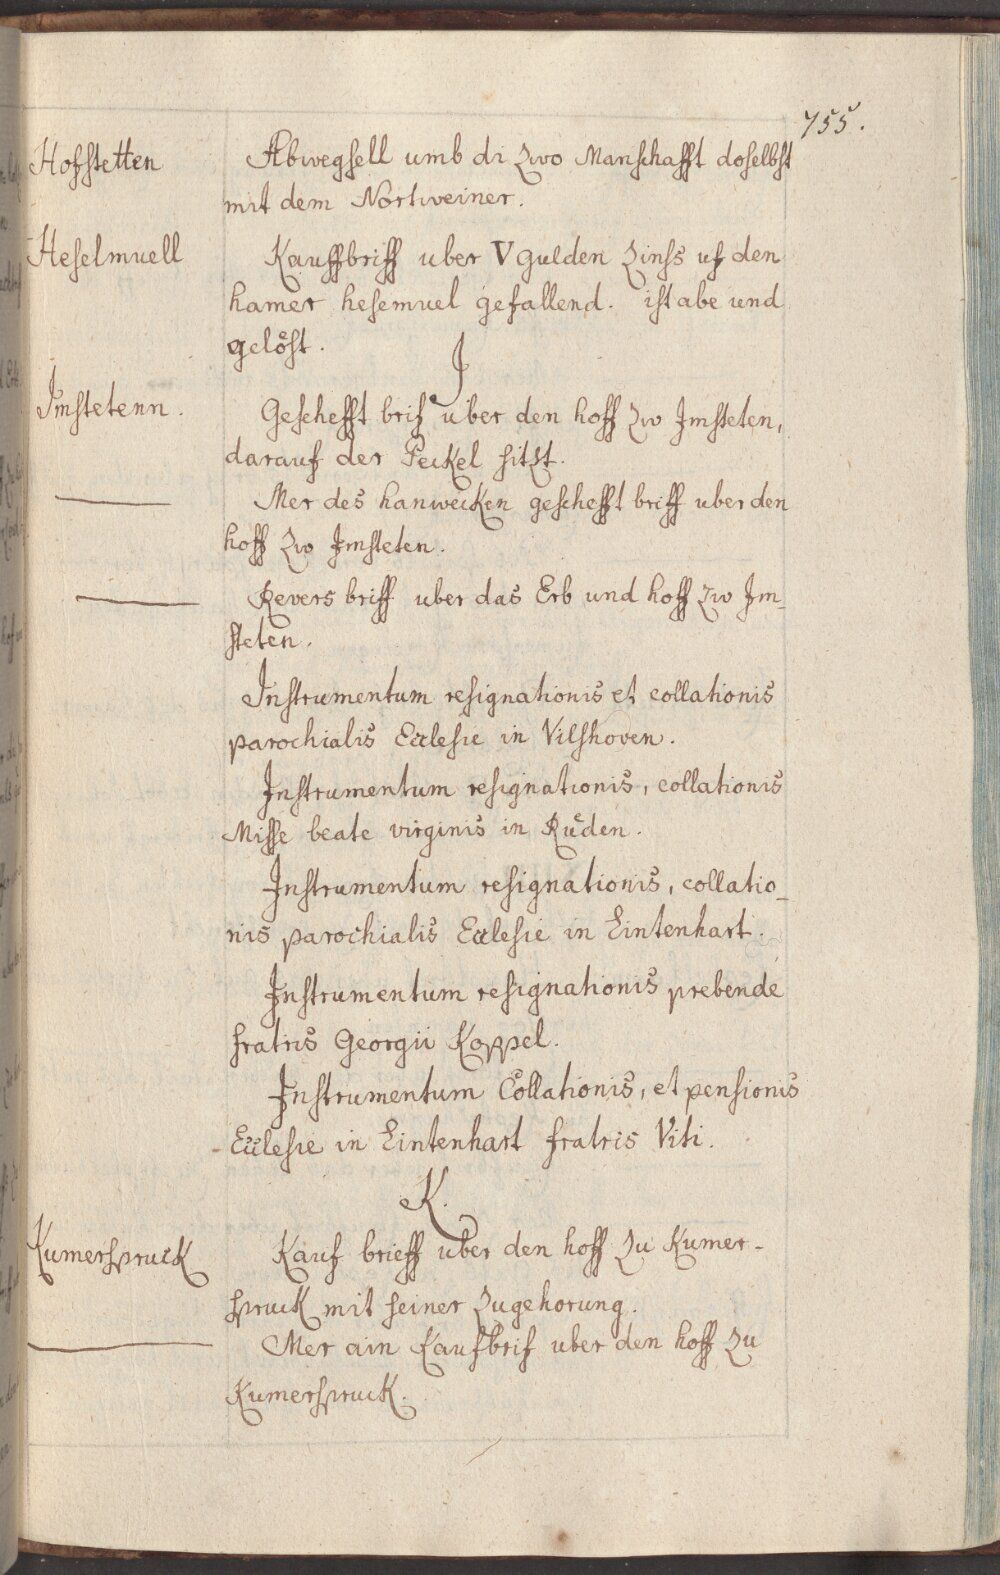 755.
Hofstetten
Abwegsell umb di zwo Manschafft doselbst
mit dem Nortweiner.
Heselmuell
Kauffbriff uber V gulden Zinss uf den
hamer hesemuel gefallend. ist abe und
gelöst.
J
Jmstetenn.
Geschefft brif uber den hoff zw Jmsteten,
darauf der Peckel sitzt.
Mer des hanwecken geschefft briff uber den
hoff zw Jmsteten.
Revers briff uber das Erb und hoff zw Jm-
steten.
Instrumentum resignationis et collationis
parochialis Ecclesie in Vilshoven.
Instrumentum resignationis, collationis
Misse beate virginis in Rüden.
Instrumentum resignationis, collatio-
nis parochialis Ecclesie in Lintenhart.
Instrumentum resignationis prebende
fratris Georgii Koppel.
Instrumentum Collationis, et pensionis
Ecclesie in Lintenhart fratris Viti.
K.
Kumerspruck
Kauf brieff uber den hoff zu Kumer-
spruck mit seiner zugehorung.
Mer ain Kaufbrif uber den hoff zu
Kumerspruck.